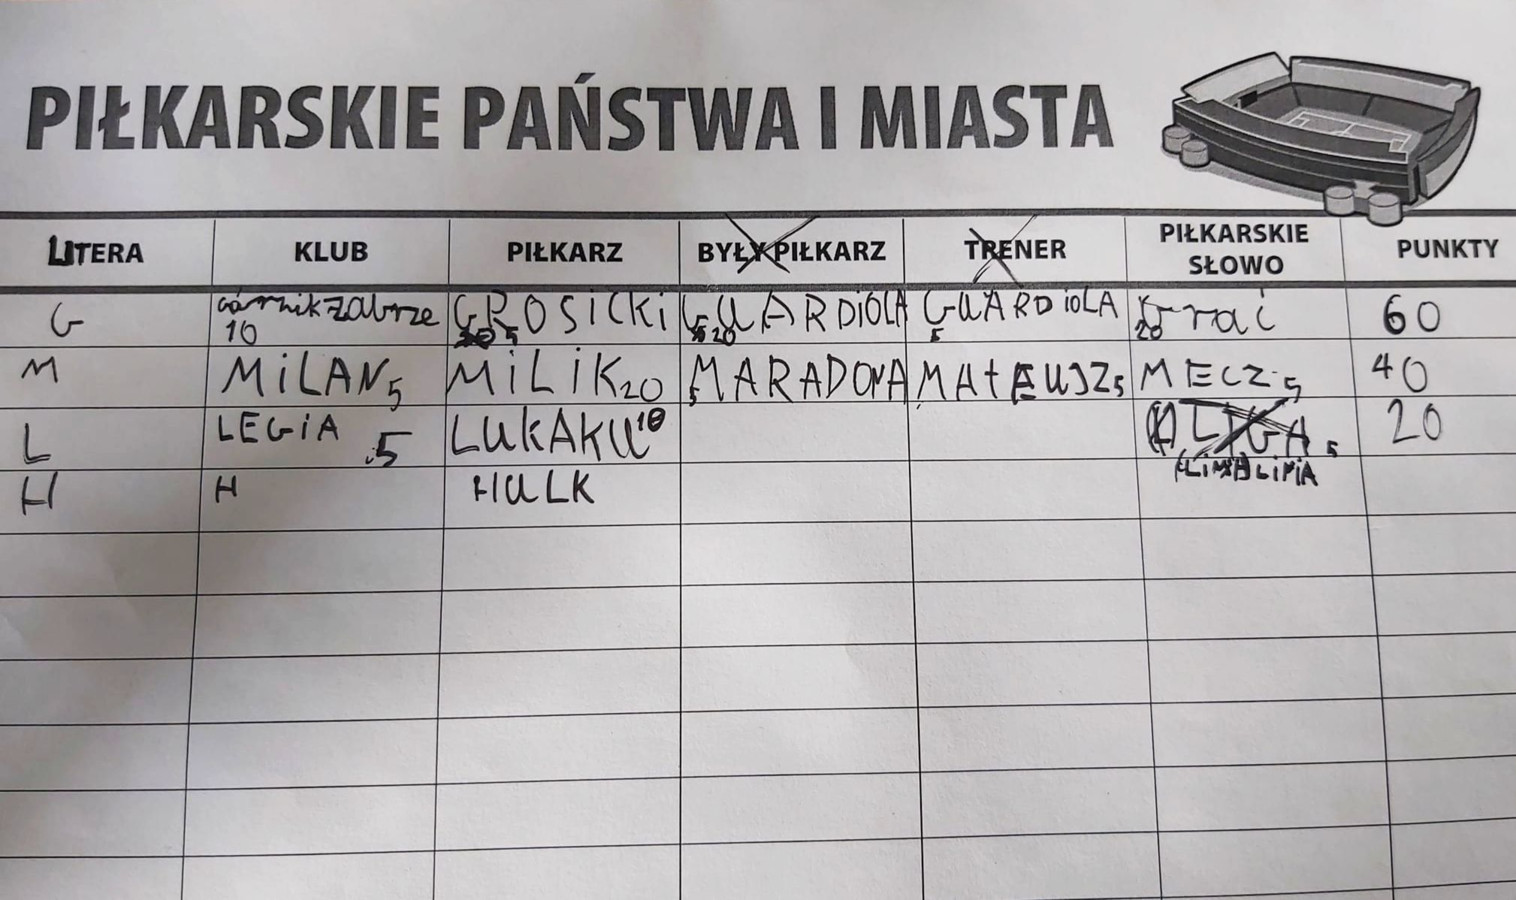 PIŁKARSKIE PAŃSTWA I MIASTA
LITERA KLUB PIŁKARZ BYŁY PIŁKARZ TRENER PIŁKARSKIE SŁOWO PUNKTY
G górnik zabrze 10 GROSICKI 5 GUARDIOLA 20 GUARDIOLA 5 Grać 20 60
M MiLAN 5 MiLiK 20 MARADONA 5 MAtEUSZ 5 MECZ 5 40
L LEGiA 5 LUKAKU 10 LIGA 5 LiNiA 20
H H HULK